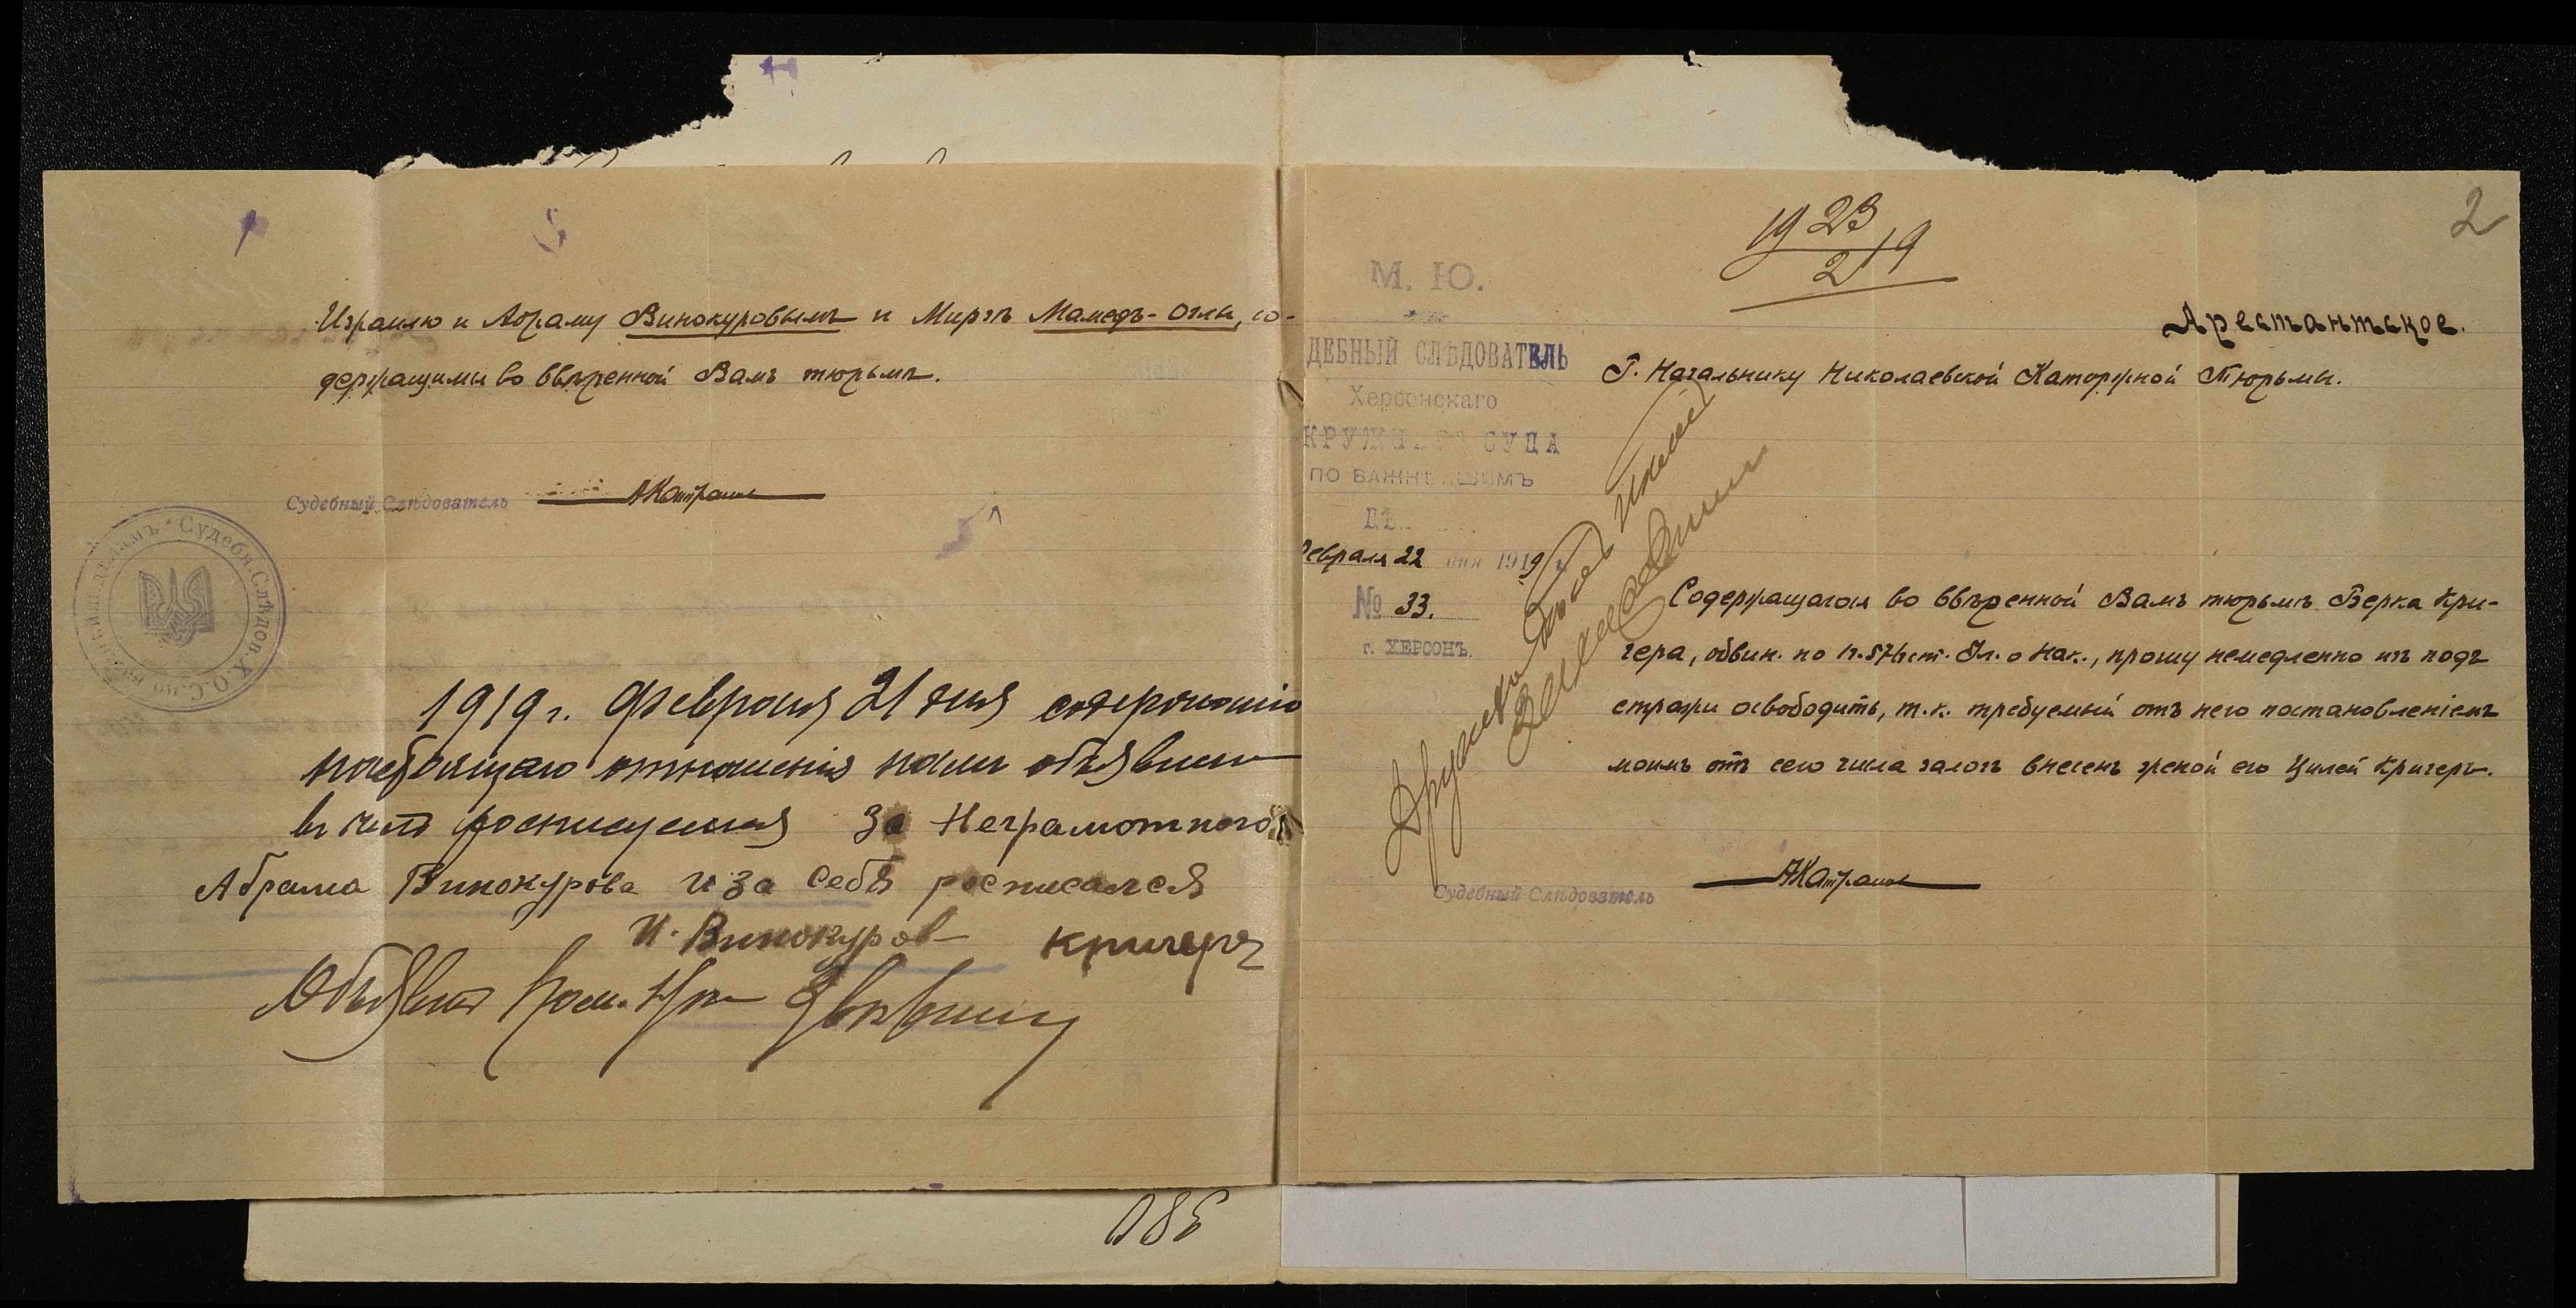 Израилю и Абраму Винокуровымъ и Мирзѣ Мамедъ-Оглы, со-
держащимся во ввѣренной Вамъ тюрьмѣ.
Судебный Слѣдователь
Судебн. Слѣдов. Х.О.С. по важнѣйш. дѣламъ
1919 г. Февраля 21 дня содержаніе
настоящаго отношенія намъ объявлено
въ чемъ росписуемся За Неграмотного
Абрама Винокурова и за себя росписался
И. Винокуров Кригеръ
Объявилъ Пом. Нач.
380
2
19 23/2 19
М. Ю.
ДЕБНЫЙ СЛѢДОВАТЕЛЬ
Херсонскаго
КРУЖНАГО СУДА
ПО ВАЖНѢЙШИМЪ
Февраля 22 дня 1919 г.
№ 33.
г. ХЕРСОНЪ.
Арестантское.
Г. Начальнику Николаевской Каторжной Тюрьмы.
Содержащагося во ввѣренной Вамъ тюрьмѣ Берка Кри-
гера, обвин. по 1 ч. 574 ст. Ул. о Нак., прошу немедленно изъ подъ
стражи освободить, т.к. требуемый отъ него постановленіемъ
моимъ отъ сего числа залогъ внесенъ женой его Цилей Кригеръ.
Судебный Слѣдователь